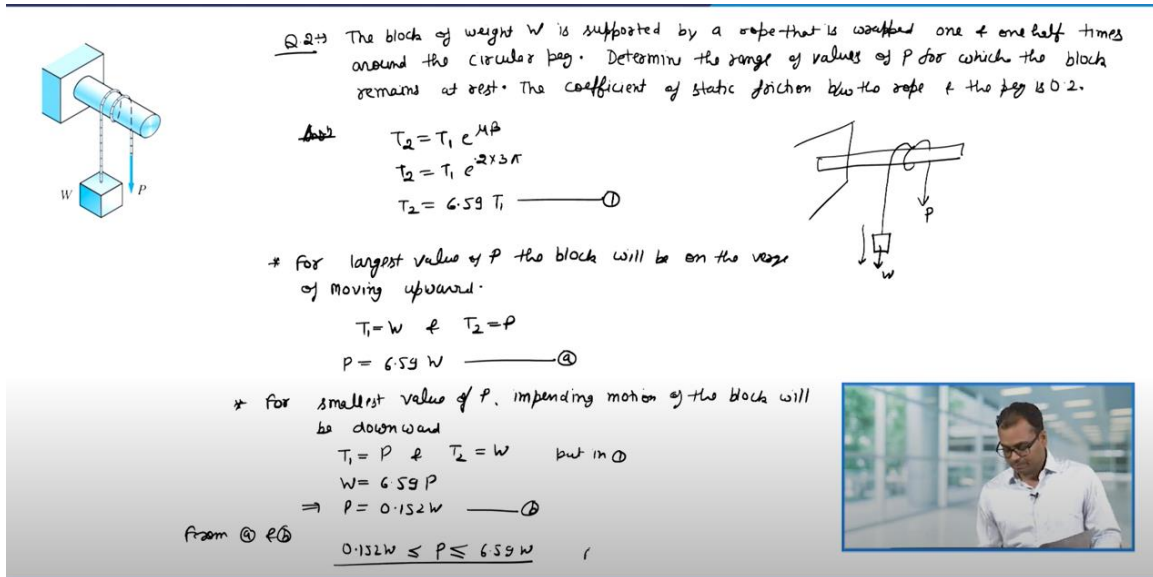 Q.2→ The block of weight W is supported by a rope that is wrapped one & one half times
around the circular peg. Determine the range of values of P for which the block
remains at rest. The coefficient of static friction b/w the rope & the peg is 0.2.
T₂ = T₁ e^μβ
T₂ = T₁ e^.2×3π
T₂ = 6.59 T₁ ——— ①
W
P
P
W
* For largest value of P the block will be on the verge
of moving upward.
T₁ = W & T₂ = P
P = 6.59 W ——— ⓐ
* For smallest value of P, impending motion of the block will
be downward
T₁ = P & T₂ = W put in ①
W = 6.59 P
⇒ P = 0.152W ——— ⓑ
From ⓐ & ⓑ
0.152W ≤ P ≤ 6.59 W